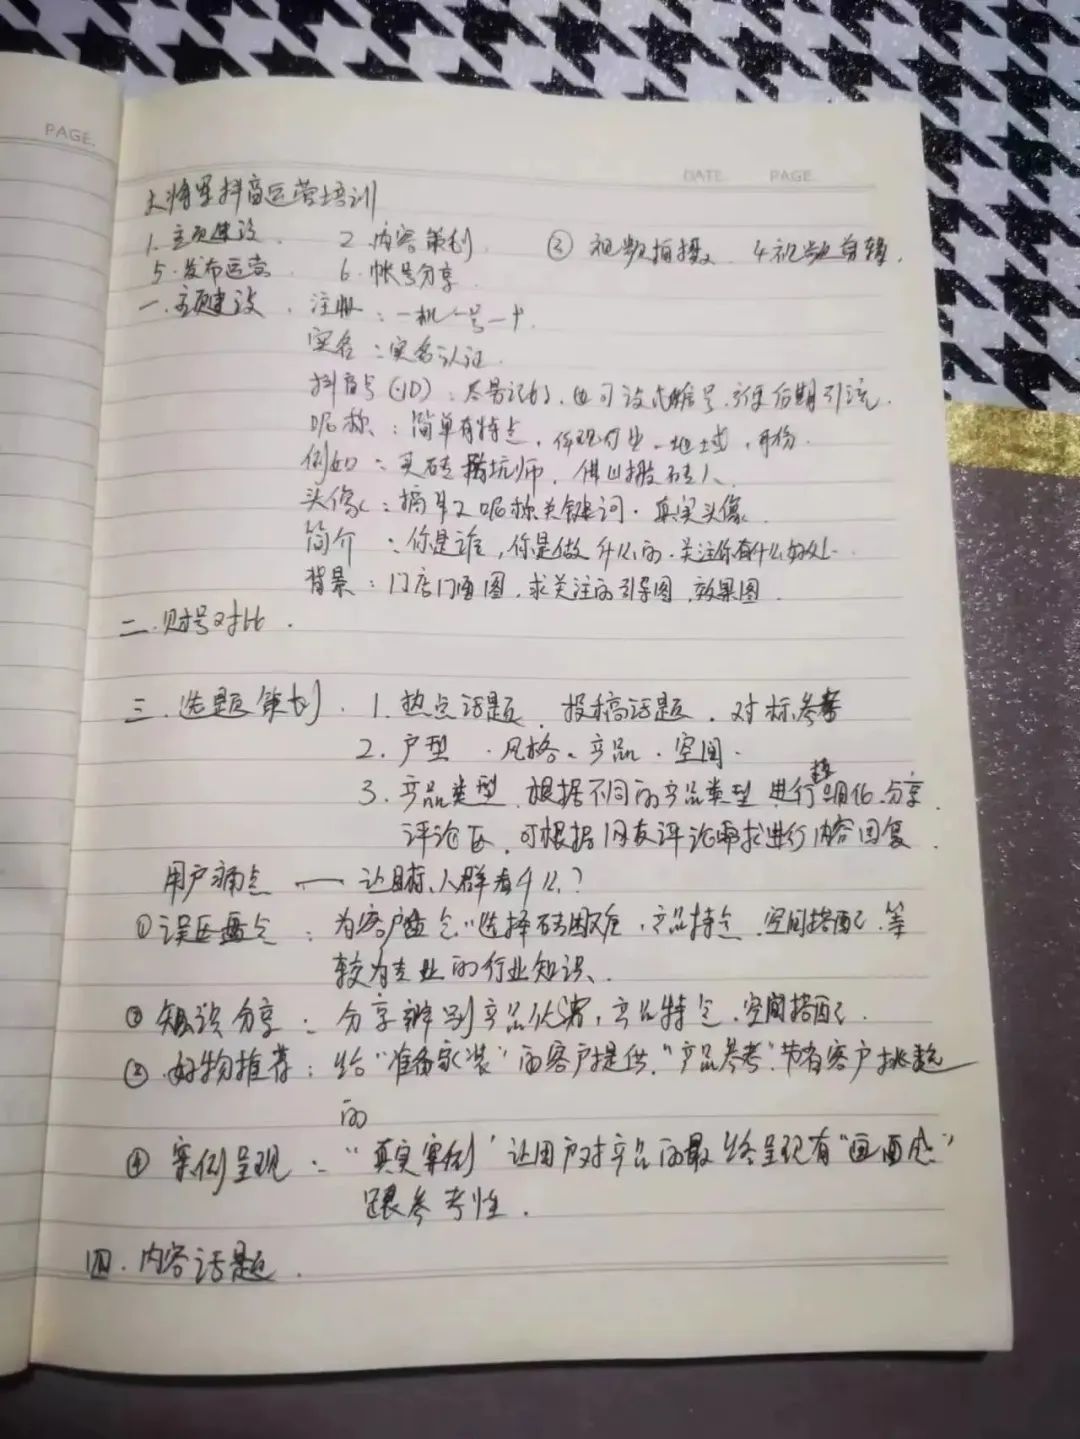 PAGE.
DATE PAGE.
大将军抖音运营培训
1.主页建设. 2.内容策划. ③视频拍摄. 4.视频剪辑.
5.发布运营. 6.帐号分享.
一.主页建设. 注册:一机一号一卡.
实名:实名认证.
抖音号(ID):尽易记的,也可设 号,后期引流.
昵称:简单有特点,体现行业、地域,身份.
例如:买砖 坑师,佛山搬砖人.
头像:搞 昵称关键词.真实头像.
简介:你是谁,你是做什么的.关注你有什么好处.
背景:门店门面图.求关注的引导图.效果图.
二.财号对比.
三.选题策划. 1.热点话题、投稿话题.对标参考
2.户型.风格、产品.空间.
3.产品类型.根据不同的产品类型进行 化分享.
评论区,可根据网友评论需求进行内容回复.
用户痛点——让目标人群看什么?
①误区盘点:为客户盘点"选择砖困难.产品特点.空间搭配.等
较为专业的行业知识.
②知识分享:分享辨别产品优劣,产品特点.空间搭配.
③好物推荐:给"准备家装"的客户提供"产品参考"节省客户挑选
的
④案例呈现:"真实案例"让用户对产品的最终呈现有"画面感"
跟参考性.
四.内容话题.